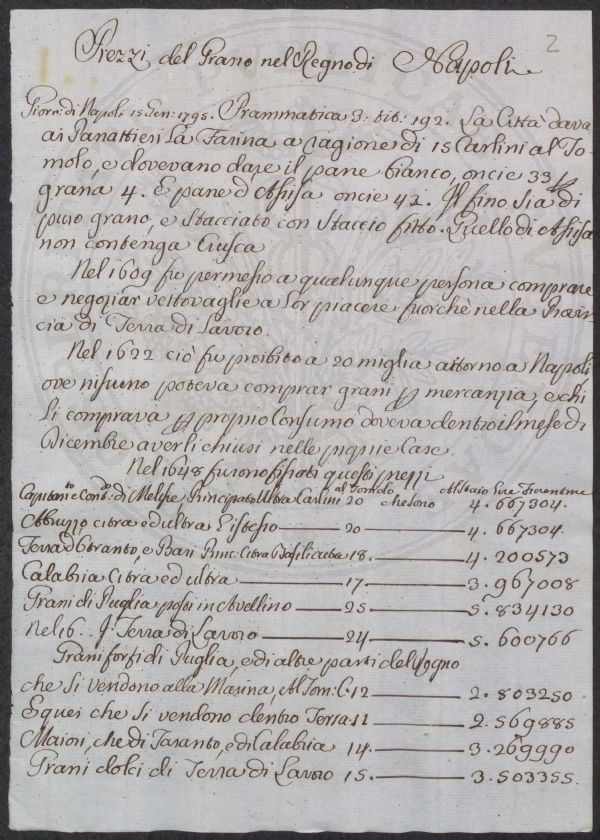 2
Prezzi del Grano nel Regno di Napoli
Giorn: di Napoli 15 Gen: 1795. Prammatica 3. tit: 192. La Città dava
ai Panattieri La Farina a ragione di 15 Carlini al To-
molo, e dovevano dare il pane bianco, oncie 33 p
grana 4. E pane d'Assisa oncie 42. Il fino sia di
puro grano, e stacciato con staccio fitto. Quello di Assisa
non contenga Crusca
Nel 1609 fu permesso a qualunque persona comprare
e negoziar vettovaglie a lor piacere fuorchè nella Provin
cia di Terra di Lavoro.
Nel 1622 ciò fu proibito a 20 miglia attorno a Napoli
ove nissuno poteva comprar grani p mercanzia, e chi
li comprava p proprio Consumo doveva dentro il mese di
Dicembre averli chiusi nelle proprie Case.
Nel 1648 furono fissati questi prezzi
Capitan.to Cont.o di Molise Principato Ultra Carlini al Tomolo 20 che sono Al Staio Lire Fiorentine 4. 667304.
Abruzzo citra ed ultra 20 4. 667304.
Terra d'Otranto, e Bari Princ: Citra Basilicata 18. 4. 200573
Calabria Citra ed ultra 17 3. 967008
Grani di Puglia posti in Avellino 25 5. 834130
Nel 16.. Terra di Lavoro 24 5. 600766
Grani forti di Puglia, e di altre parti del Regno
che si vendono alla Marina, Al Tom: C. 12 2. 803250
E quei che si vendono dentro Terra 11 2. 569885
Maiori, che di Taranto, e di Calabria 14. 3. 269990
Grani dolci di Terra di Lavoro 15. 3. 503355.